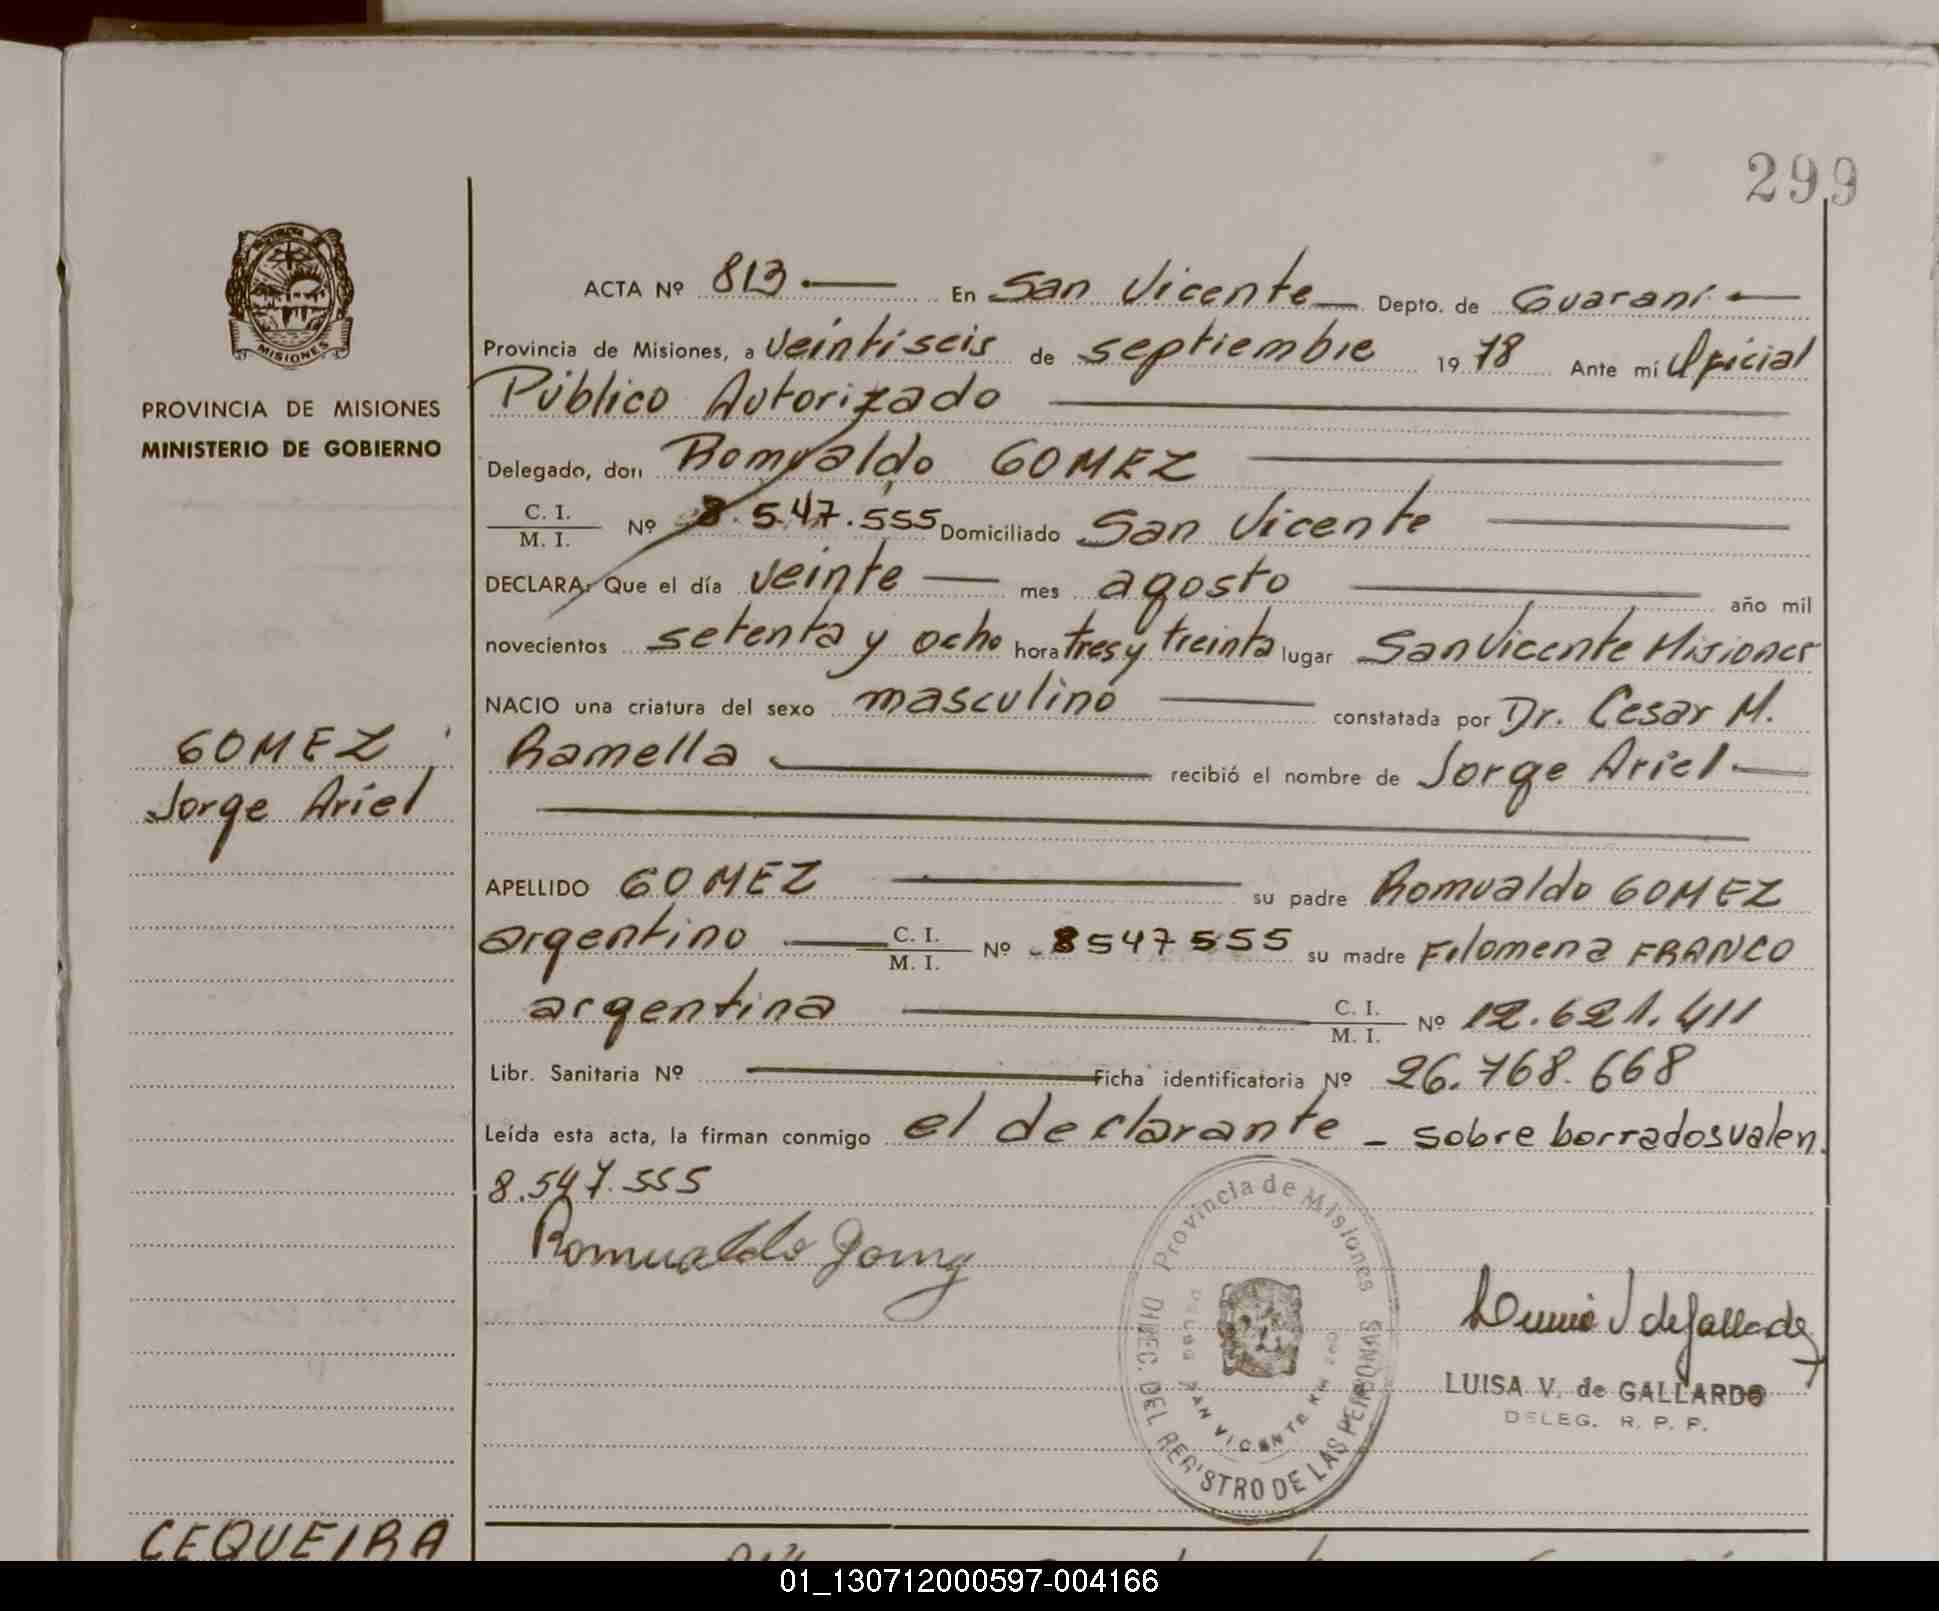 299
MISIONES
PROVINCIA DE MISIONES
MINISTERIO DE GOBIERNO
GOMEZ
Jorge Ariel
ACTA Nº 813 En San Vicente Depto. de Guaraní
Provincia de Misiones, a veintiseis de septiembre 1978 Ante mí Oficial
Público Autorizado
Delegado, don Romualdo GOMEZ
C. I.
M. I. Nº 8.547.555 Domiciliado San Vicente
DECLARA: Que el día veinte mes agosto año mil
novecientos setenta y ocho hora tres y treinta lugar San Vicente Misiones
NACIO una criatura del sexo masculino constatada por Dr. Cesar M.
Ramella recibió el nombre de Jorge Ariel
APELLIDO GOMEZ su padre Romualdo GOMEZ
argentino C. I.
M. I. Nº 8547555 su madre Filomena FRANCO
argentina C. I.
M. I. Nº 12.621.411
Libr. Sanitaria Nº Ficha identificatoria Nº 26.768.668
Leída esta acta, la firman conmigo el declarante - sobre borrados valen.
8.547.555
Romualdo Gomez
Provincia de Misiones
DIREC. DEL REGISTRO DE LAS PERSONAS
SAN VICENTE
LUISA V. de GALLARDO
DELEG. R. P. P.
CEQUEIRA
01_130712000597-004166